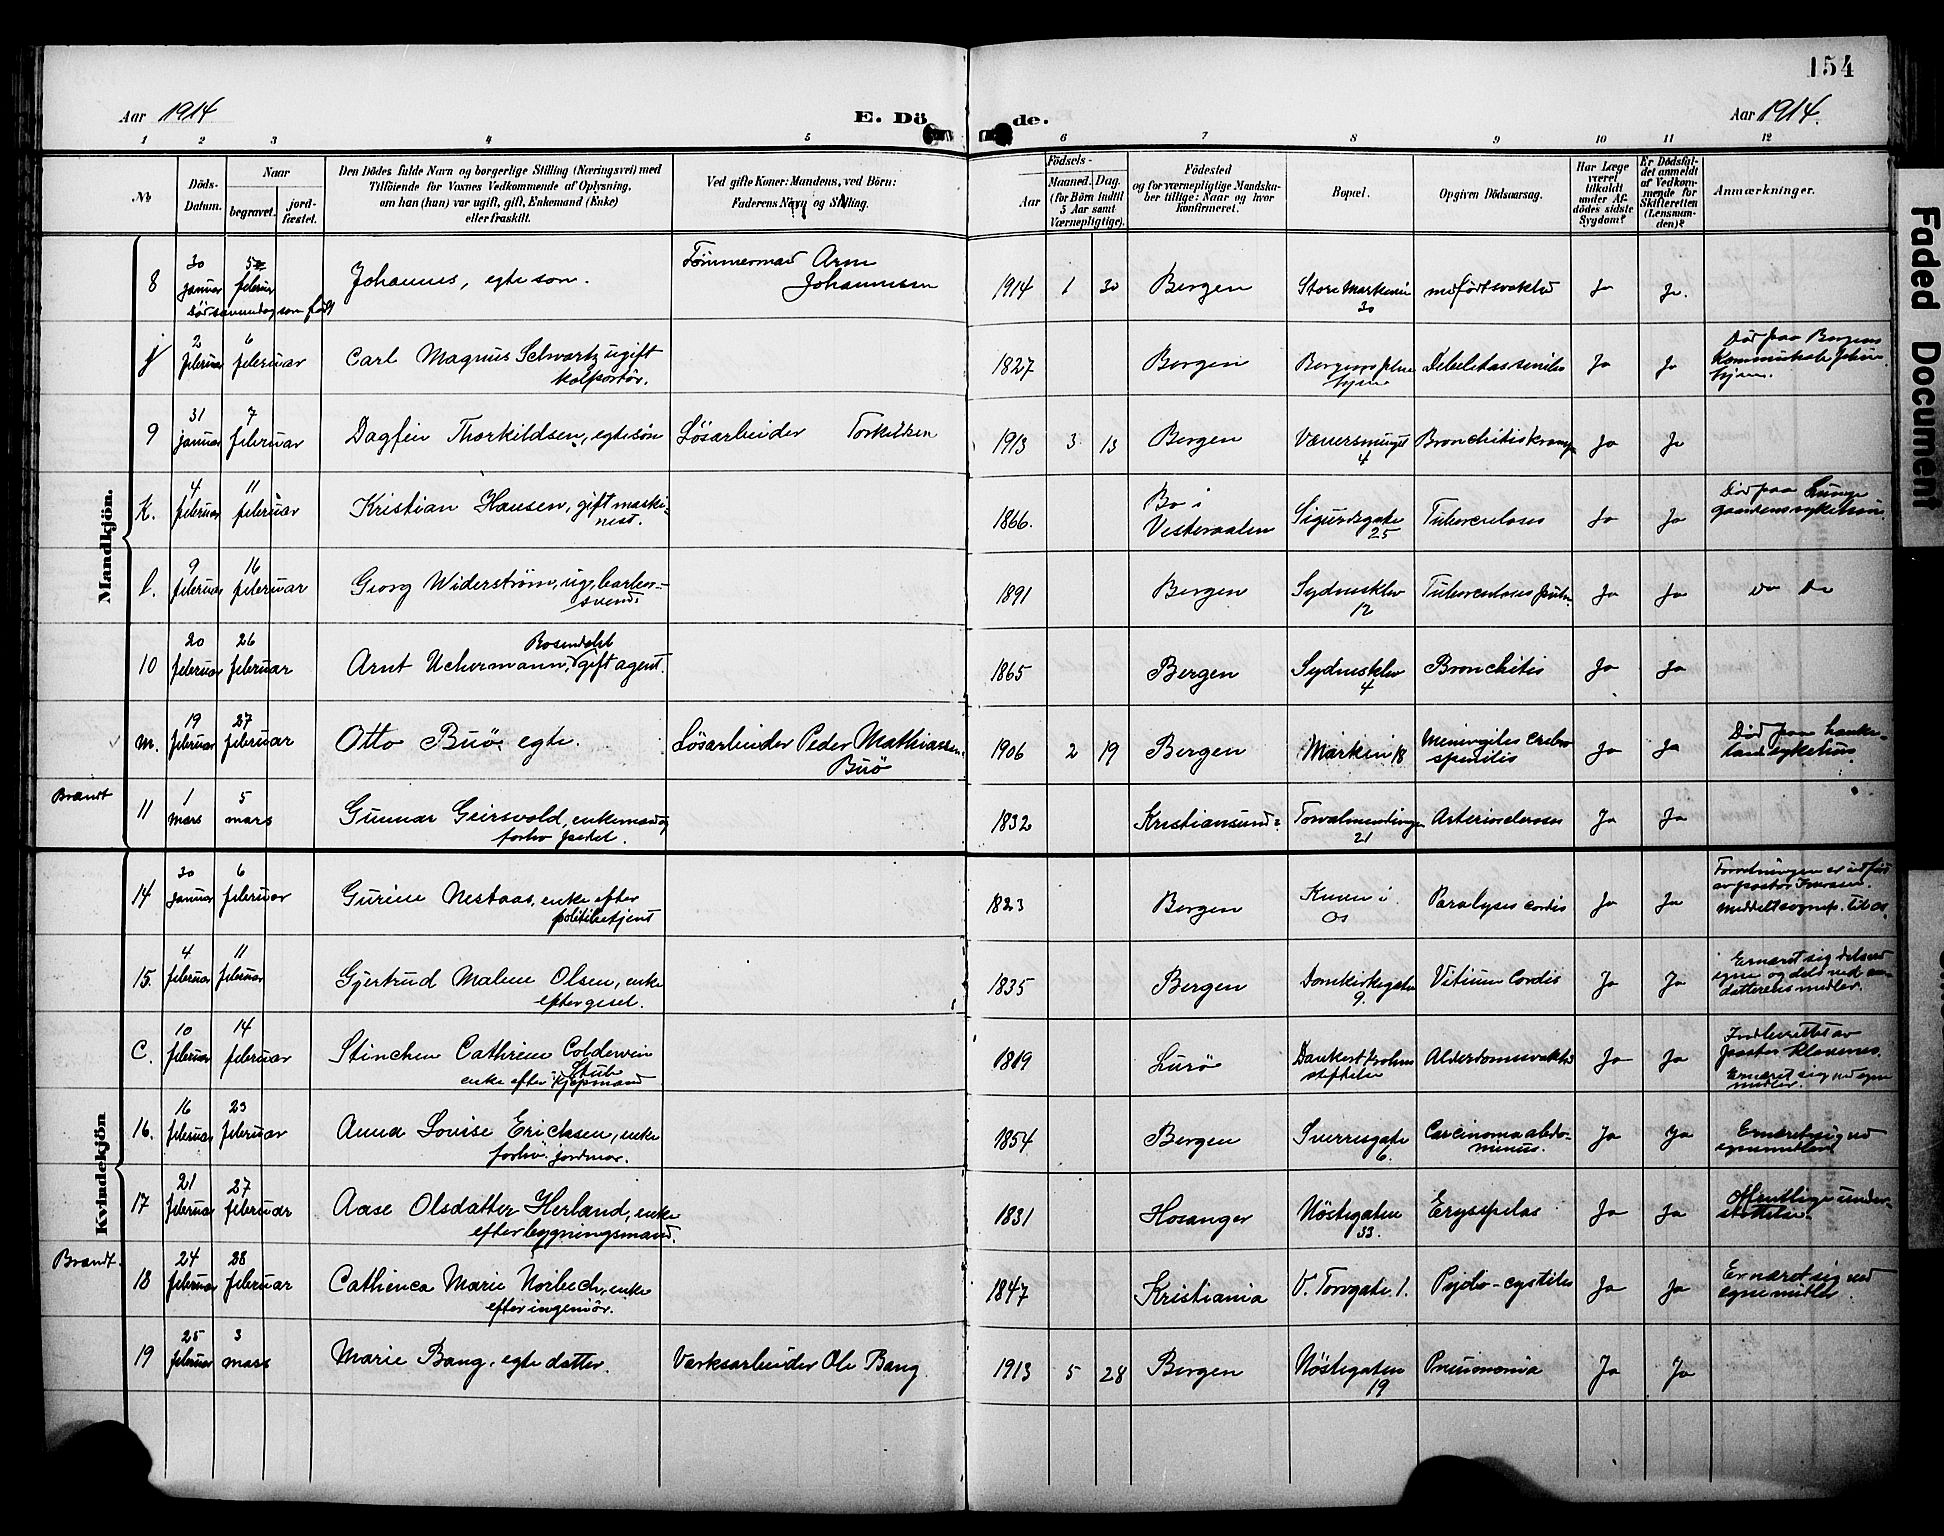 154
Aar 1914
E. Dö de.
Aar 1914.
1 2 3 4 5 6 7 8 9 10 11 12
No
Döds-
Datum.
Naar
begravet.
jord-
fæstet.
Den Dödes fulde Navn og borgerlige Stilling (Næringsvei) med
Tilföiende for Voxnes Vedkommende af Oplysning,
om han (hun) var ugift, gift, Enkemand (Enke)
eller fraskilt.
Ved gifte Koner: Mandens, ved Börn:
Faderens Navn og Stilling.
Födsels-
Aar
Maaned. Dag.
(for Börn indtil
5 Aar samt
Værnepligtige).
Födested
og for værnepligtige Mandska-
ber tillige: Naar og hvor
konfirmeret.
Bopæl.
Opgiven Dödsaarsag.
Har Læge
været
tilkaldt
under Af-
dödes sidste
Sygdom?
Er Dödsfal-
det anmeldt
af Vedkom-
mende for
Skifteretten
(Lensman-
den)?
Anmærkninger.
Mandkjön.
8 30 januar 5 februar Johannes, egte son. Tømmermand Arne Johannesen 1914 1 30 Bergen Store Markevei 30 medfødt svakhed Ja Ja.
Død samme dag som født
2 februar 6 februar Carl Magnus Schwartz ugift kolportør. 1827 Bergen Bergens pleiehjem Debilitas senilis Ja Ja Død paa Bergens kommunale pleiehjem.
9 31 januar 7 februar Dagfin Thorkildsen, egte søn Løsarbeider Torkildsen 1913 3 13 Bergen 4 Bronchitis krampe Ja Ja
K. 4 februar 11 februar Kristian Hansen, gift maskinist. 1866. Bø i Vesteraalen Sigurdsgate 25 Tuberculosis Ja Ja Død paa Lungegaardens sykehus.
l. 9 februar 16 februar Georg Widerstrøm, ug. barbersvend. 1891 Bergen Sydnesklev 12 Tuberculosis pulm. Ja Ja Do Do
10 20 februar 26 februar Arnt Uchermann, Rosendahl gift agent. 1865 Bergen Sydnesklev 4 Bronchitis Ja Ja
m. 19 februar 27 februar Otto Buø, egte. Løsarbeider Peder Mathiassen Buø 1906 2 19 Bergen Marken 18 Meningitis cerebrospinalis Ja Ja Død paa Haukelands sykehus.
Brandt 11 1 mars 5 mars Gunnar Geirsvold, enkemand forhv. 1832 Kristiansund Torvalmendingen 21 Arteriosclerosis Ja Ja
Kvindekjön
14 30 januar 6 februar Gurine Nestaas, enke efter politibetjent 1823 Bergen i Os Paralysis cordis Ja Ja Forretningen er utført av pastor Meddelt sognep. til Os.
15. 4 februar 11 februar Gjertrud Malene Olsen, enke efter gesel. 1835 Bergen Domkirkegaten 9. Vitium Cordis Ja Ja Ernæret sig dels ved egne og dels ved datterens midler.
C. 10 februar 14 februar Stinchen Cathrine Coldevin Stub enke efter kjøpmand 1819 Lurø Dankert Krohns stiftelse Alderdomssvakhed Ja Ja Indberettet av pastor Klaveness. Ernæret sig ved egne midler.
16. 16 februar 23 februar Anna Lovise Ericksen, enke forhv. jordmor. 1854 Bergen Sverresgate 6. Carcinoma abdominus. Ja Ja Ernæret sig ved egne midler
17 21 februar 27 februar Aase Olsdatter Herland, enke efter bygningsmand. 1831 Hosanger Nöstegaten 33. Erysipelas Ja Ja Offentlig understøttelse.
Brandt. 18 24 februar 28 februar Cathinca Marie Norbech, enke efter ingeniør. 1847 Kristiania V. Torvgate. 1. Pyelo-cystitis Ja Ja Ernæret sig ved egne midler
19 25 februar 3 mars Marie Bang, egte datter. Værksarbeider Ole Bang 1913 5 28 Bergen Nöstegaten 19 Pneumonia Ja Ja
Faded Document